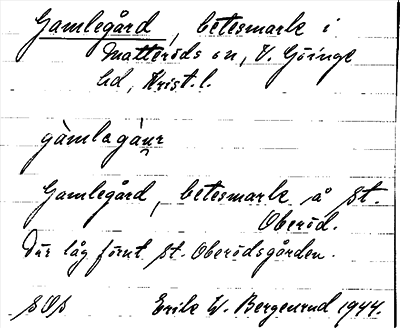 Gamlegård, betesmark i
Matteröds sn, V. Göinge
hd, Krist. l.
gàmlagáur
Gamlegård, betesmark å St.
Oberöd.
Där låg förut St. Oberödsgården.
SOS Erik W. Bergenrud 1944.